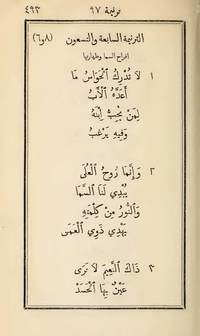 ٤٩٣ ترنيمة ٩٧
الترنيمة السابعة والتسعون (٨ و٦)
افراح السما وطهارتها
١ لَا تُدْرِكُ ٱلْحَوَاسُ مَا
أَعَدَّهُ ٱلْأَبُ
لِمَنْ يُحِبُّ ٱبْنَهُ
وَفِيهِ يَرْغَبُ
٢ وَإِنَّمَا رُوحُ ٱلْعُلَى
يُبْدِي لَنَا ٱلسَّمَا
وَٱلنُّورُ مِنْ كِلْمَتِهِ
يَهْدِي ذَوِي ٱلْعَمَى
٣ ذَاكَ ٱلنَّعِيمُ لَا تَرَى
عَيْنٌ بِهَا ٱلْحَسَدْ